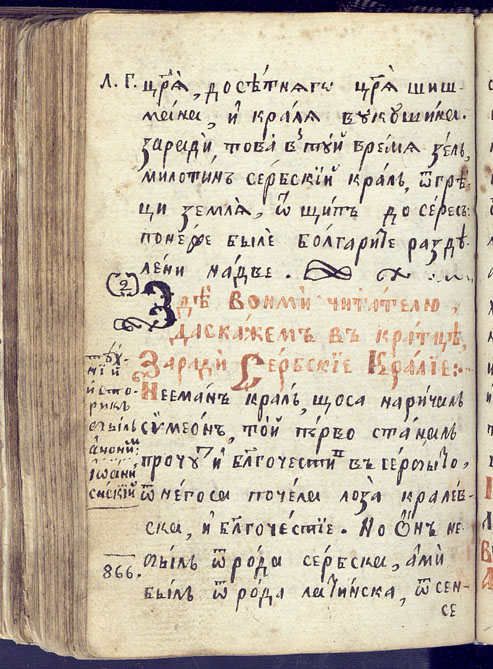 Л. Г. цр҃ѧ, досѣ́тнѧгѡ цр҃ѧ шиш-
ма́на, и҆ кра́лѧ вукѹши́на.
за́ради това̀ в̾ту́й вре́мѧ зе́лъ,
милоти́нъ се́рбскїй кра́лъ, ѿгре́-
щи землѧ̀, ѿ щи́пъ до се́ресъ:
поне́же бы́ле бо́лгарите раздѣ-
ле́ни на́две.
2
Здѣ̀ во́нми чита́телю,
да ска́жемъ въ кра́тцѣ,
За́ради Се́рбскїе Кра́лїе:
Нееманъ кра́лъ, що са нари́чалъ
сѷмео́нъ, то́й пе́рво ста́налъ
прочу́т и҆ бл҃гочести́в въ се́рбїю,
ѿ него са поче́ла ло́за крале́в-
ска, и҆ бл҃гоче́стїе. Но ѻ҆́нъ не
бы́лъ ѿ ро́да се́рбска, а҆мѝ
бы́лъ ѿ ро́да лати́нска, ѿ сен-
се
866.